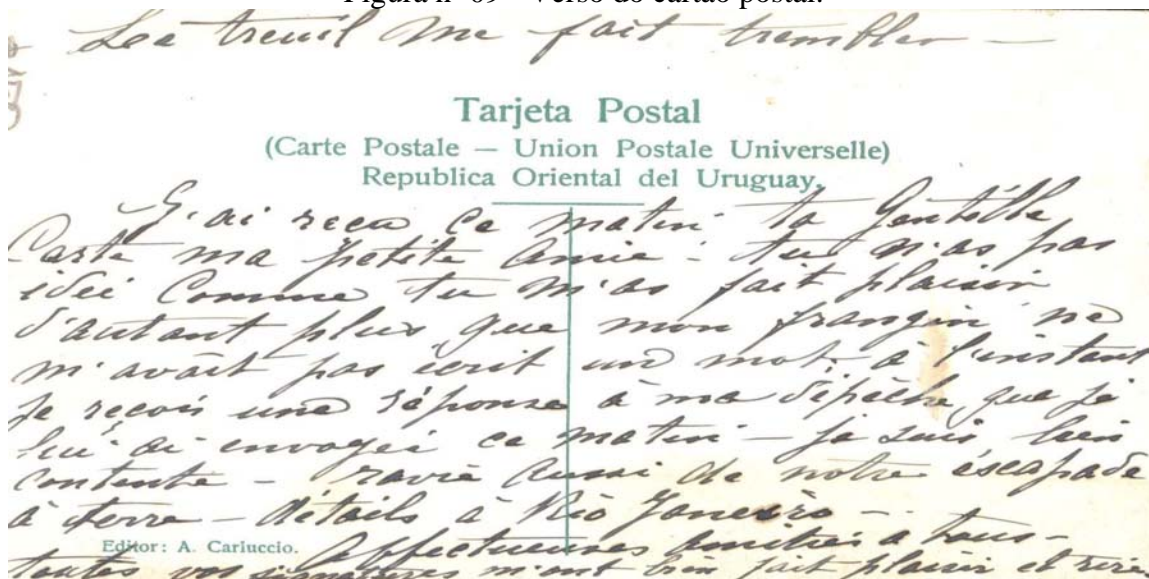 Figura nº 69 – Verso do cartão postal.
Lea treuil me fait trembler —
Tarjeta Postal
(Carte Postale — Union Postale Universelle)
Republica Oriental del Uruguay.
J'ai reçu ce matin ta gentille
Carte ma petite amie - tu n'as pas
idée comme tu m'as fait plaisir
d'autant plus que mon frangin ne
m'avait pas écrit un mot; à l'instant
je reçois une réponse à ma dépêche que je
lui ai envoyée ce matin — je suis bien
contente — ravie aussi de notre escapade
à terre — détails à Rio Janeiro —
Editor: A. Carluccio.
affectueuses amitiés à tous -
toutes vos signatures m'ont bien fait plaisir et rire